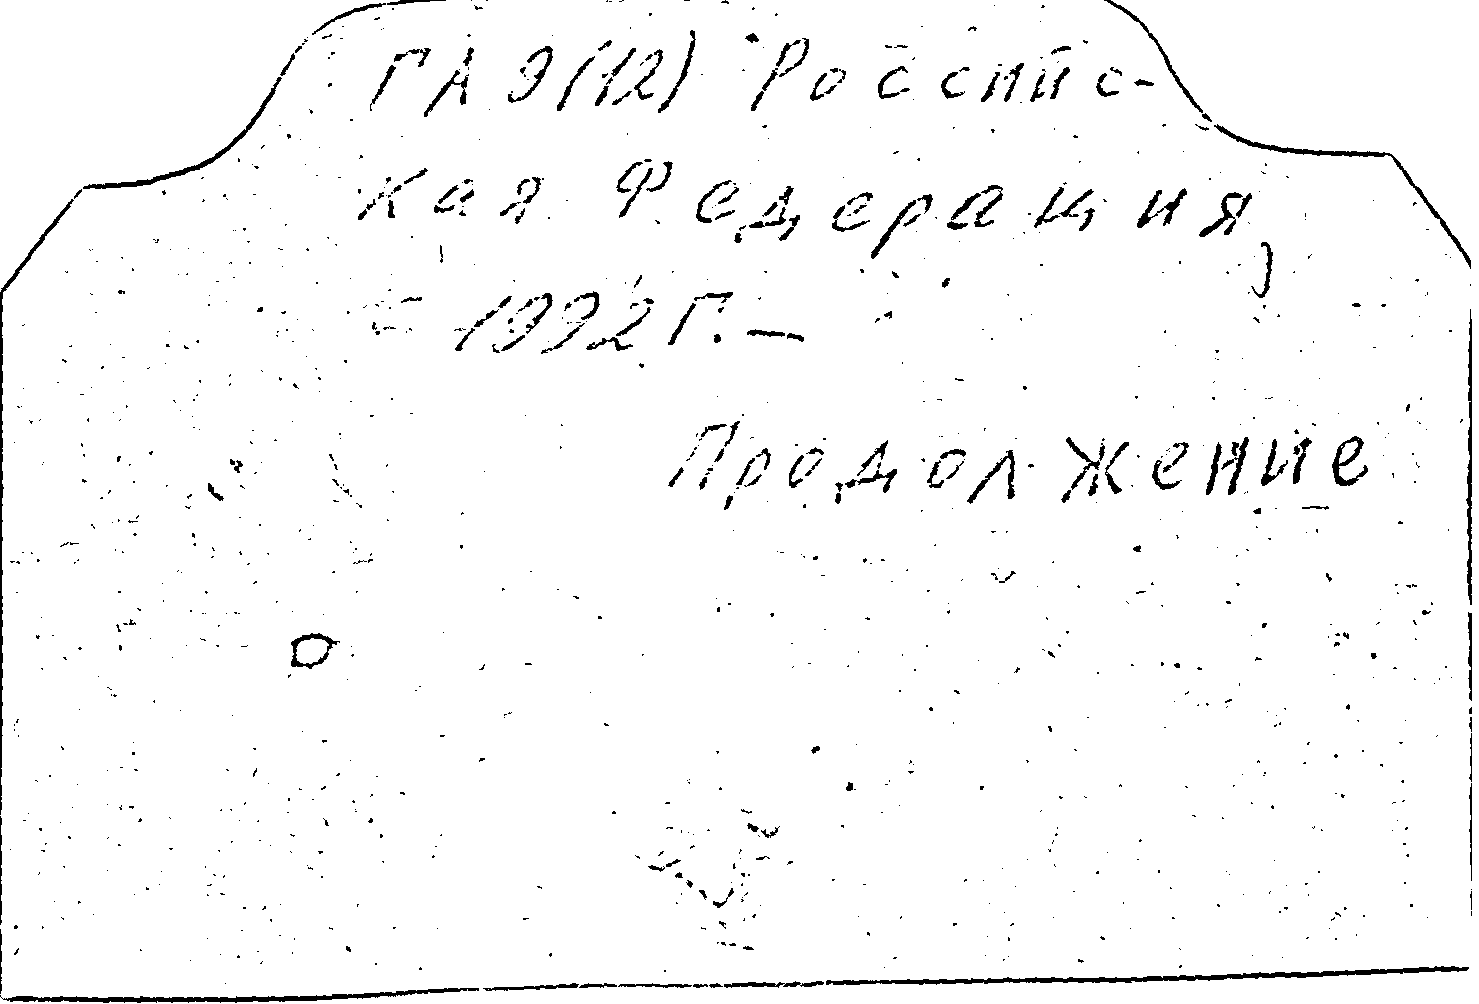 ГА 9(12) Российс-
кая Федерация,
- 1992 г. —
Продолжение